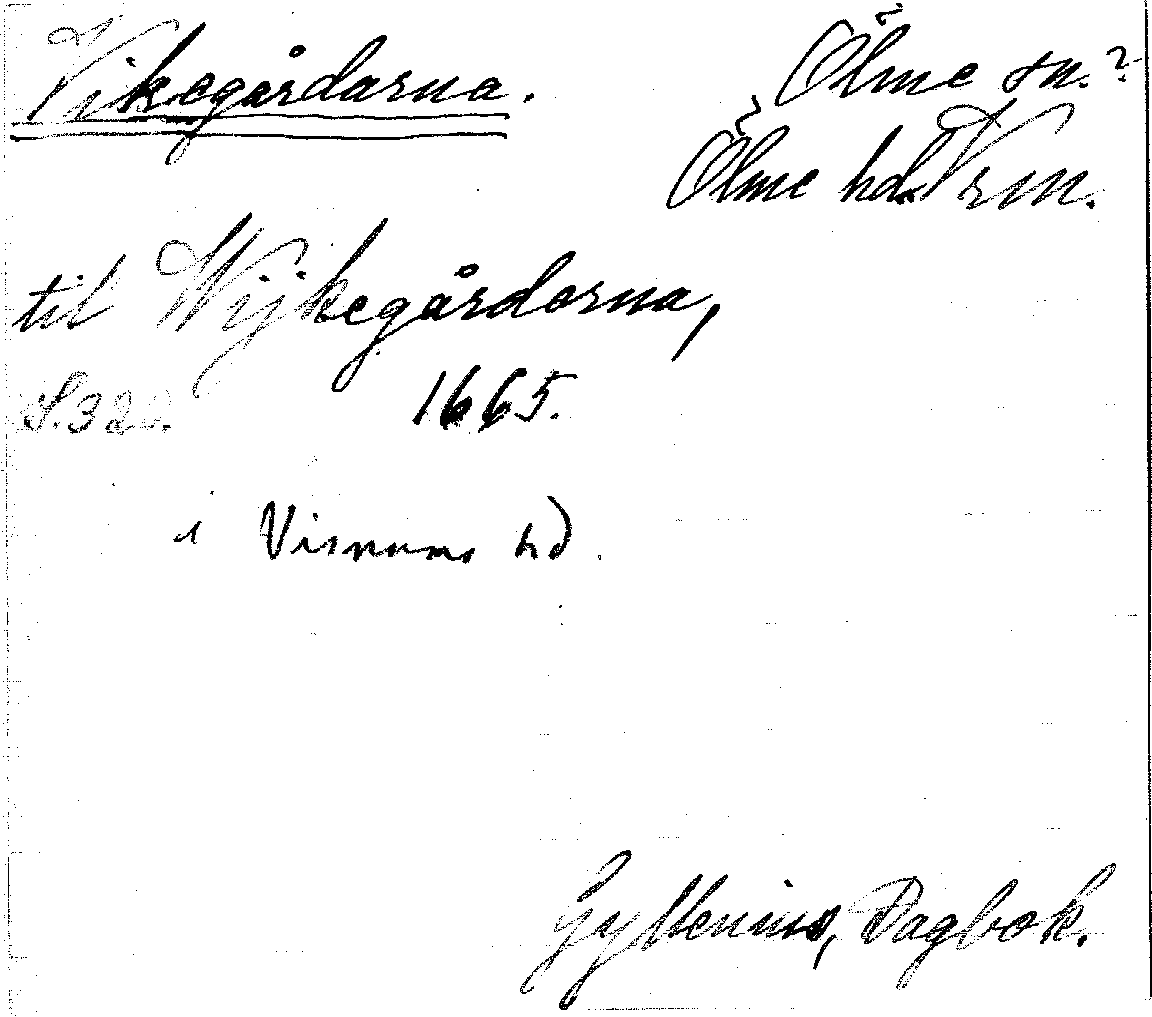 Vikegårdarna.
Ölme sn.?
Ölme hd. Vrm.
til Wijkegårdorna,
S. 320. 1665.
i Visnums hd.
Gyllenius, Dagbok.